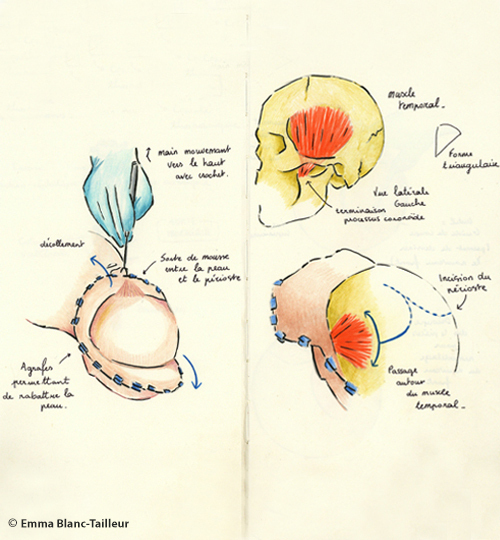 main mouvement
vers le haut
avec crochet.
décollement
Sorte de mousse
entre la peau
et le périoste
Agrafes
permettant
de rabattre la
peau.
Muscle
temporal.
Forme
triangulaire
Vue latérale
Gauche
terminaison
processus coronoïde
Incision du
périoste
Passage
autour
du muscle
temporal.
© Emma Blanc-Tailleur